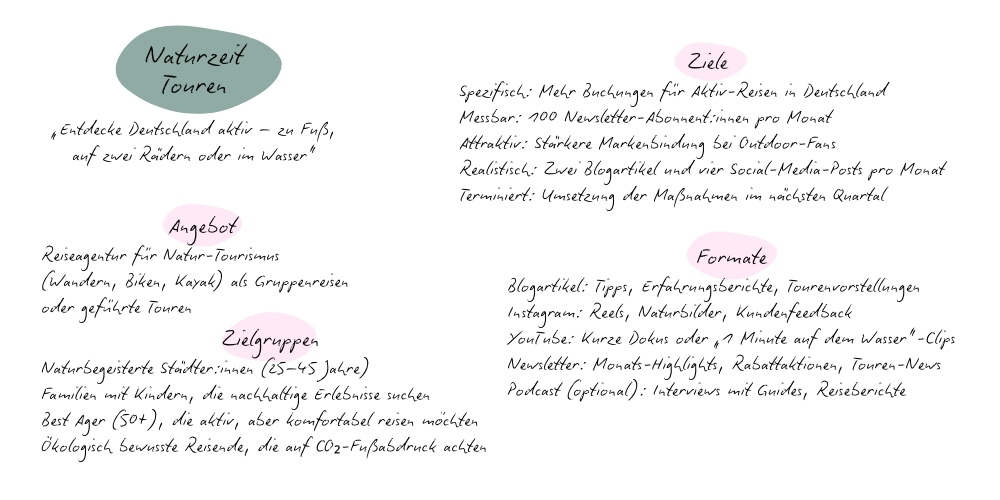 Naturzeit
Touren
„Entdecke Deutschland aktiv – zu Fuß,
auf zwei Rädern oder im Wasser"
Angebot
Reiseagentur für Natur-Tourismus
(Wandern, Biken, Kayak) als Gruppenreisen
oder geführte Touren
Zielgruppen
Naturbegeisterte Städter:innen (25–45 Jahre)
Familien mit Kindern, die nachhaltige Erlebnisse suchen
Best Ager (50+), die aktiv, aber komfortabel reisen möchten
Ökologisch bewusste Reisende, die auf CO₂-Fußabdruck achten
Ziele
Spezifisch: Mehr Buchungen für Aktiv-Reisen in Deutschland
Messbar: 100 Newsletter-Abonnent:innen pro Monat
Attraktiv: Stärkere Markenbindung bei Outdoor-Fans
Realistisch: Zwei Blogartikel und vier Social-Media-Posts pro Monat
Terminiert: Umsetzung der Maßnahmen im nächsten Quartal
Formate
Blogartikel: Tipps, Erfahrungsberichte, Tourenvorstellungen
Instagram: Reels, Naturbilder, Kundenfeedback
YouTube: Kurze Dokus oder „1 Minute auf dem Wasser"-Clips
Newsletter: Monats-Highlights, Rabattaktionen, Touren-News
Podcast (optional): Interviews mit Guides, Reiseberichte